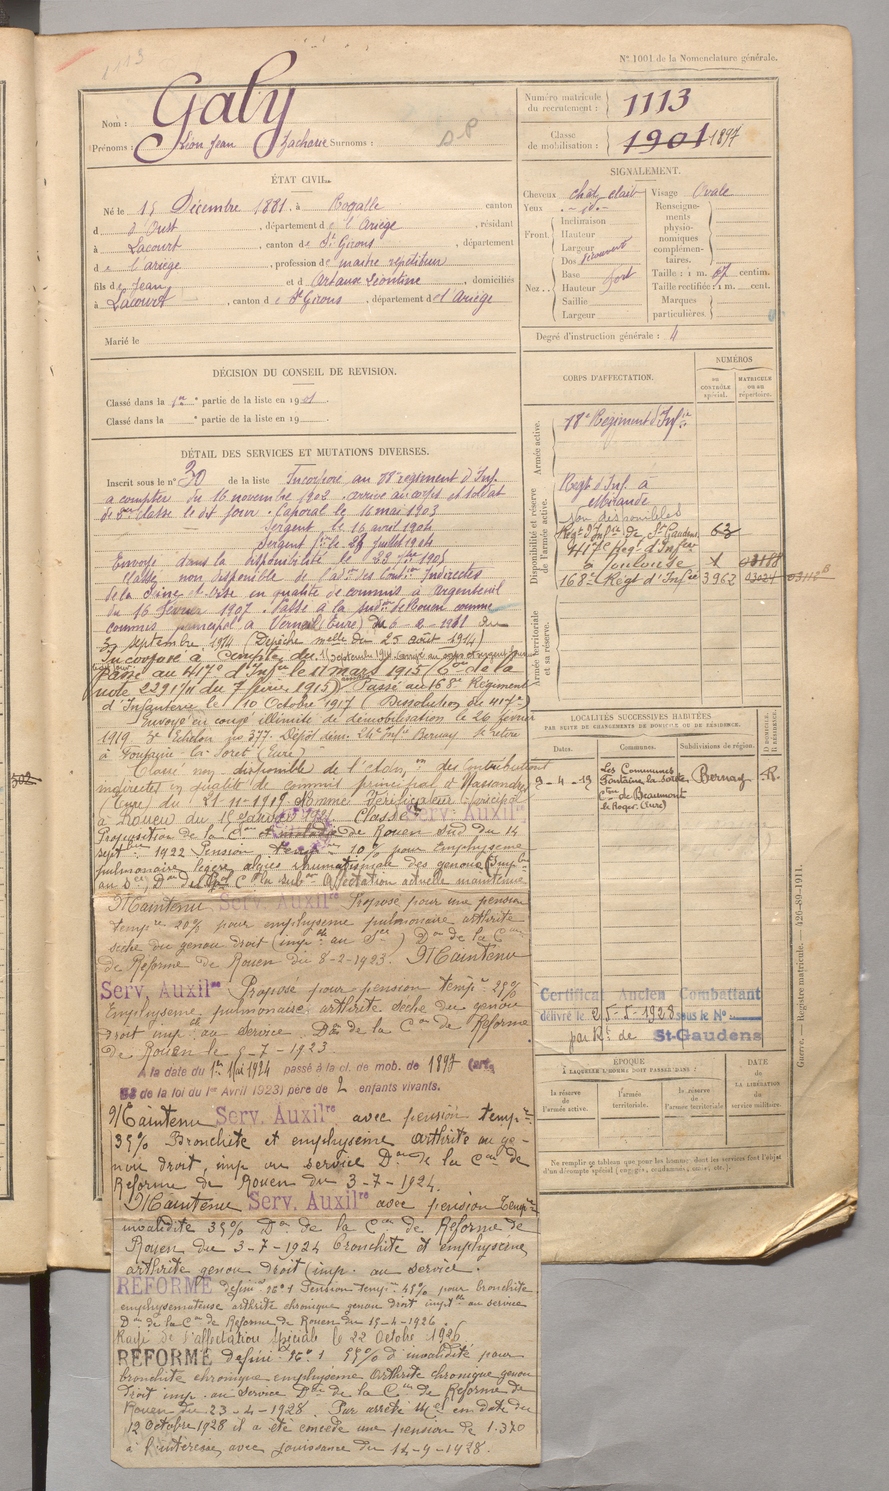 1113
N° 1001 de la Nomenclature générale.
Nom : Galy
Prénoms : Léon Jean Zacharie Surnoms :
D.P
Numéro matricule du recrutement : 1113
Classe de mobilisation : 1901 1897
ÉTAT CIVIL.
Né le 15 Décembre 1881, à Rogalle canton
d'Oust, département de l'Ariège, résidant
à Lacourt, canton de St Girons, département
de l'ariège, profession de maitre répétiteur
fils de Jean et d Artaux Léontine, domiciliés
à Lacourt, canton de St Girons, département de l'Ariège
Marié le
SIGNALEMENT.
Cheveux chât. clair Visage Ovale
Yeux
Front Inclinaison
Hauteur
Largeur
Nez Dos
Base
Hauteur fort
Saillie
Largeur
Renseignements physionomiques complémentaires.
Taille : 1 m. 67 centim.
Taille rectifiée : 1 m. cent.
Marques particulières.
Degré d'instruction générale : 4
DÉCISION DU CONSEIL DE REVISION.
Classé dans la 1re partie de la liste en 1901.
Classé dans la partie de la liste en 19
CORPS D'AFFECTATION.
NUMÉROS
DU CONTRÔLE spécial.
MATRICULE OU DU répertoire.
Armée active.
18e Régiment d'Infrie
Disponibilité et réserve de l'armée active.
Regt d'Inf. à Mirande
non disponibles
Regt d'Infie de St Gaudens 63
417e Regt d'Infrie
à Toulouse X 03188
168e Régt d'Infie 3962 03024 03118
Armée territoriale et sa réserve.
DÉTAIL DES SERVICES ET MUTATIONS DIVERSES.
Inscrit sous le n° 30 de la liste Incorporé au 88e régiment d'Inf.
a compter du 16 novembre 1902. arrivé au corps et soldat
de 2e classe le dit jour. Caporal le 16 mai 1903
Sergent le 16 avril 1904
Sergent le 24 Juillet 1904
Envoyé dans la disponibilité le 23 7bre 1905
Classé non disponible de l'adon des Contons Indirectes
de la Seine et Oise en qualité de commis à argenteuil
du 16 février 1907. Passé à la subdon de Rouen comme
commis principal à Verneuil (Eure) du 6-2-1911
septembre 1914 (Dépêche melle du 25 août 1914)
Incorporé à Compter du 11 septembre 1914
Passé au 417e d'Infie le 11 mars 1915 (Con de la
note 2291/11 du 7 1915) Passé au 168e Régiment
d'Infanterie le 10 Octobre 1917 (Dissolution du 417e)
Envoyé en congé illimité de démobilisation le 26 février
1919. 3e Echelon n° 377. Dépôt dém. 24e Infie Bernay Se retire
à Fontaine-la-Soret (Eure)
Classé non-disponible de l'Adon des Contributions
indirectes en qualité de commis principal à Nassandres
(Eure) du 21-11-1919. Nommé Vérificateur principal
à Rouen du 15 1921. Classé Serv. Auxilre
Proposition de la Con de Rouen sud du 14
septbre 1922 Pension tempre 10% pour Emphysème
pulmonaire léger, algies rhumatismale des genoux (Imp.
au sce) Affectation actuelle maintenue
Maintenu Serv. Auxilre Proposé pour une pension
tempre 20% pour emphysème pulmonaire arthrite
sèche du genou droit (imp. au Ser) Don de la Con
de Réforme de Rouen du 8-2-1923. Maintenu
Serv. Auxilre Proposé pour pension tempre 25%
Emphysème pulmonaire arthrite sèche du genou
droit imp. au service. Don de la Con de Réforme
de Rouen le 5-7-1923
A la date du 1er Mai 1924 passé à la cl. de mob. de 1897 (art.
58 de la loi du 1er Avril 1923) père de 2 enfants vivants.
Maintenu Serv. Auxilre avec pension tempre
35% Bronchite et emphysème arthrite au ge-
nou droit, imp au service Don de la Con de
Réforme de Rouen du 3-7-1924.
Maintenu Serv. Auxilre avec pension Tempre
invalidité 35% Don de la Con de Réforme de
Rouen du 3-7-1924 bronchite et emphysème
arthrite genou droit imp. au service.
REFORMÉ définif N° 1 Pension tempre 45% pour bronchite
emphysémateuse arthrite chronique genou droit impt. au service
Don de la Con de Réforme de Rouen du 15-4-1926.
Rayé de l'affectation Spéciale le 22 Octobre 1926
REFORMÉ définif N° 1 55% d'invalidité pour
bronchite chronique emphysème arthrite chronique genou
droit imp. au service Don de la Con de Réforme de
Rouen du 23-4-1928. Par arrêté Mel en date du
12 Octobre 1928 il a été concédé une pension de 1.370
à l'intéressé, avec jouissance du 14-9-1928.
LOCALITÉS SUCCESSIVES HABITÉES
PAR SUITE DE CHANGEMENTS DE DOMICILE OU DE RÉSIDENCE.
Dates. Communes. Subdivisions de région. D. DOMICILE. R. RÉSIDENCE.
9-4-19 Fontaine la Soret Con de Beaumont le Roger. (Eure) Bernay R.
Certificat Ancien Combattant
délivré le 25-5-1928 sous le N°
par R. de St-Gaudens
ÉPOQUE
À LAQUELLE L'HOMME DOIT PASSER DANS :
la réserve de l'armée active.
l'armée territoriale.
la réserve de l'armée territoriale
DATE de LA LIBÉRATION du service militaire.
Ne remplir ce tableau que pour les hommes dont les services font l'objet d'un décompte spécial (engagés, omis, etc.).
Guerre. — Registre matricule. — 426-89-1911.
502